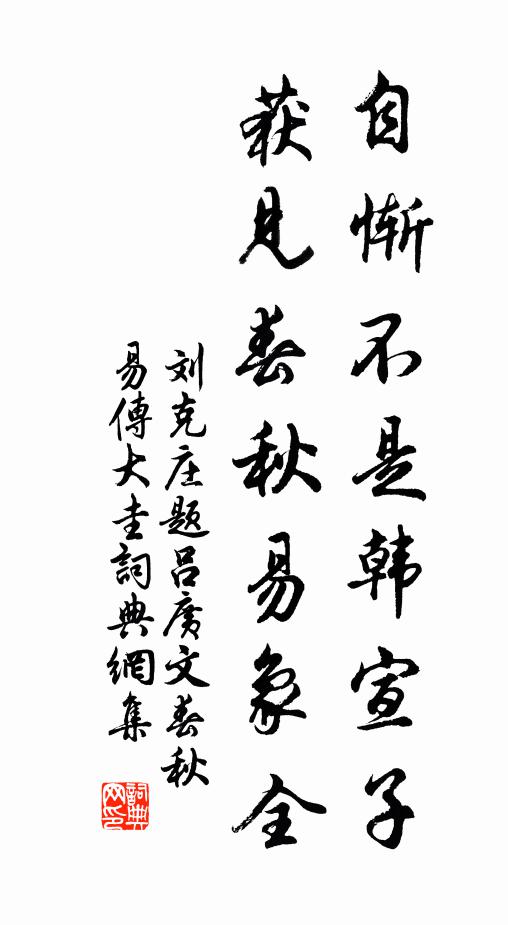 自惭不是韩宣子
获见春秋易象全
刘克庄题吕广文春秋
易傳大圭詞典網集
詞典网印